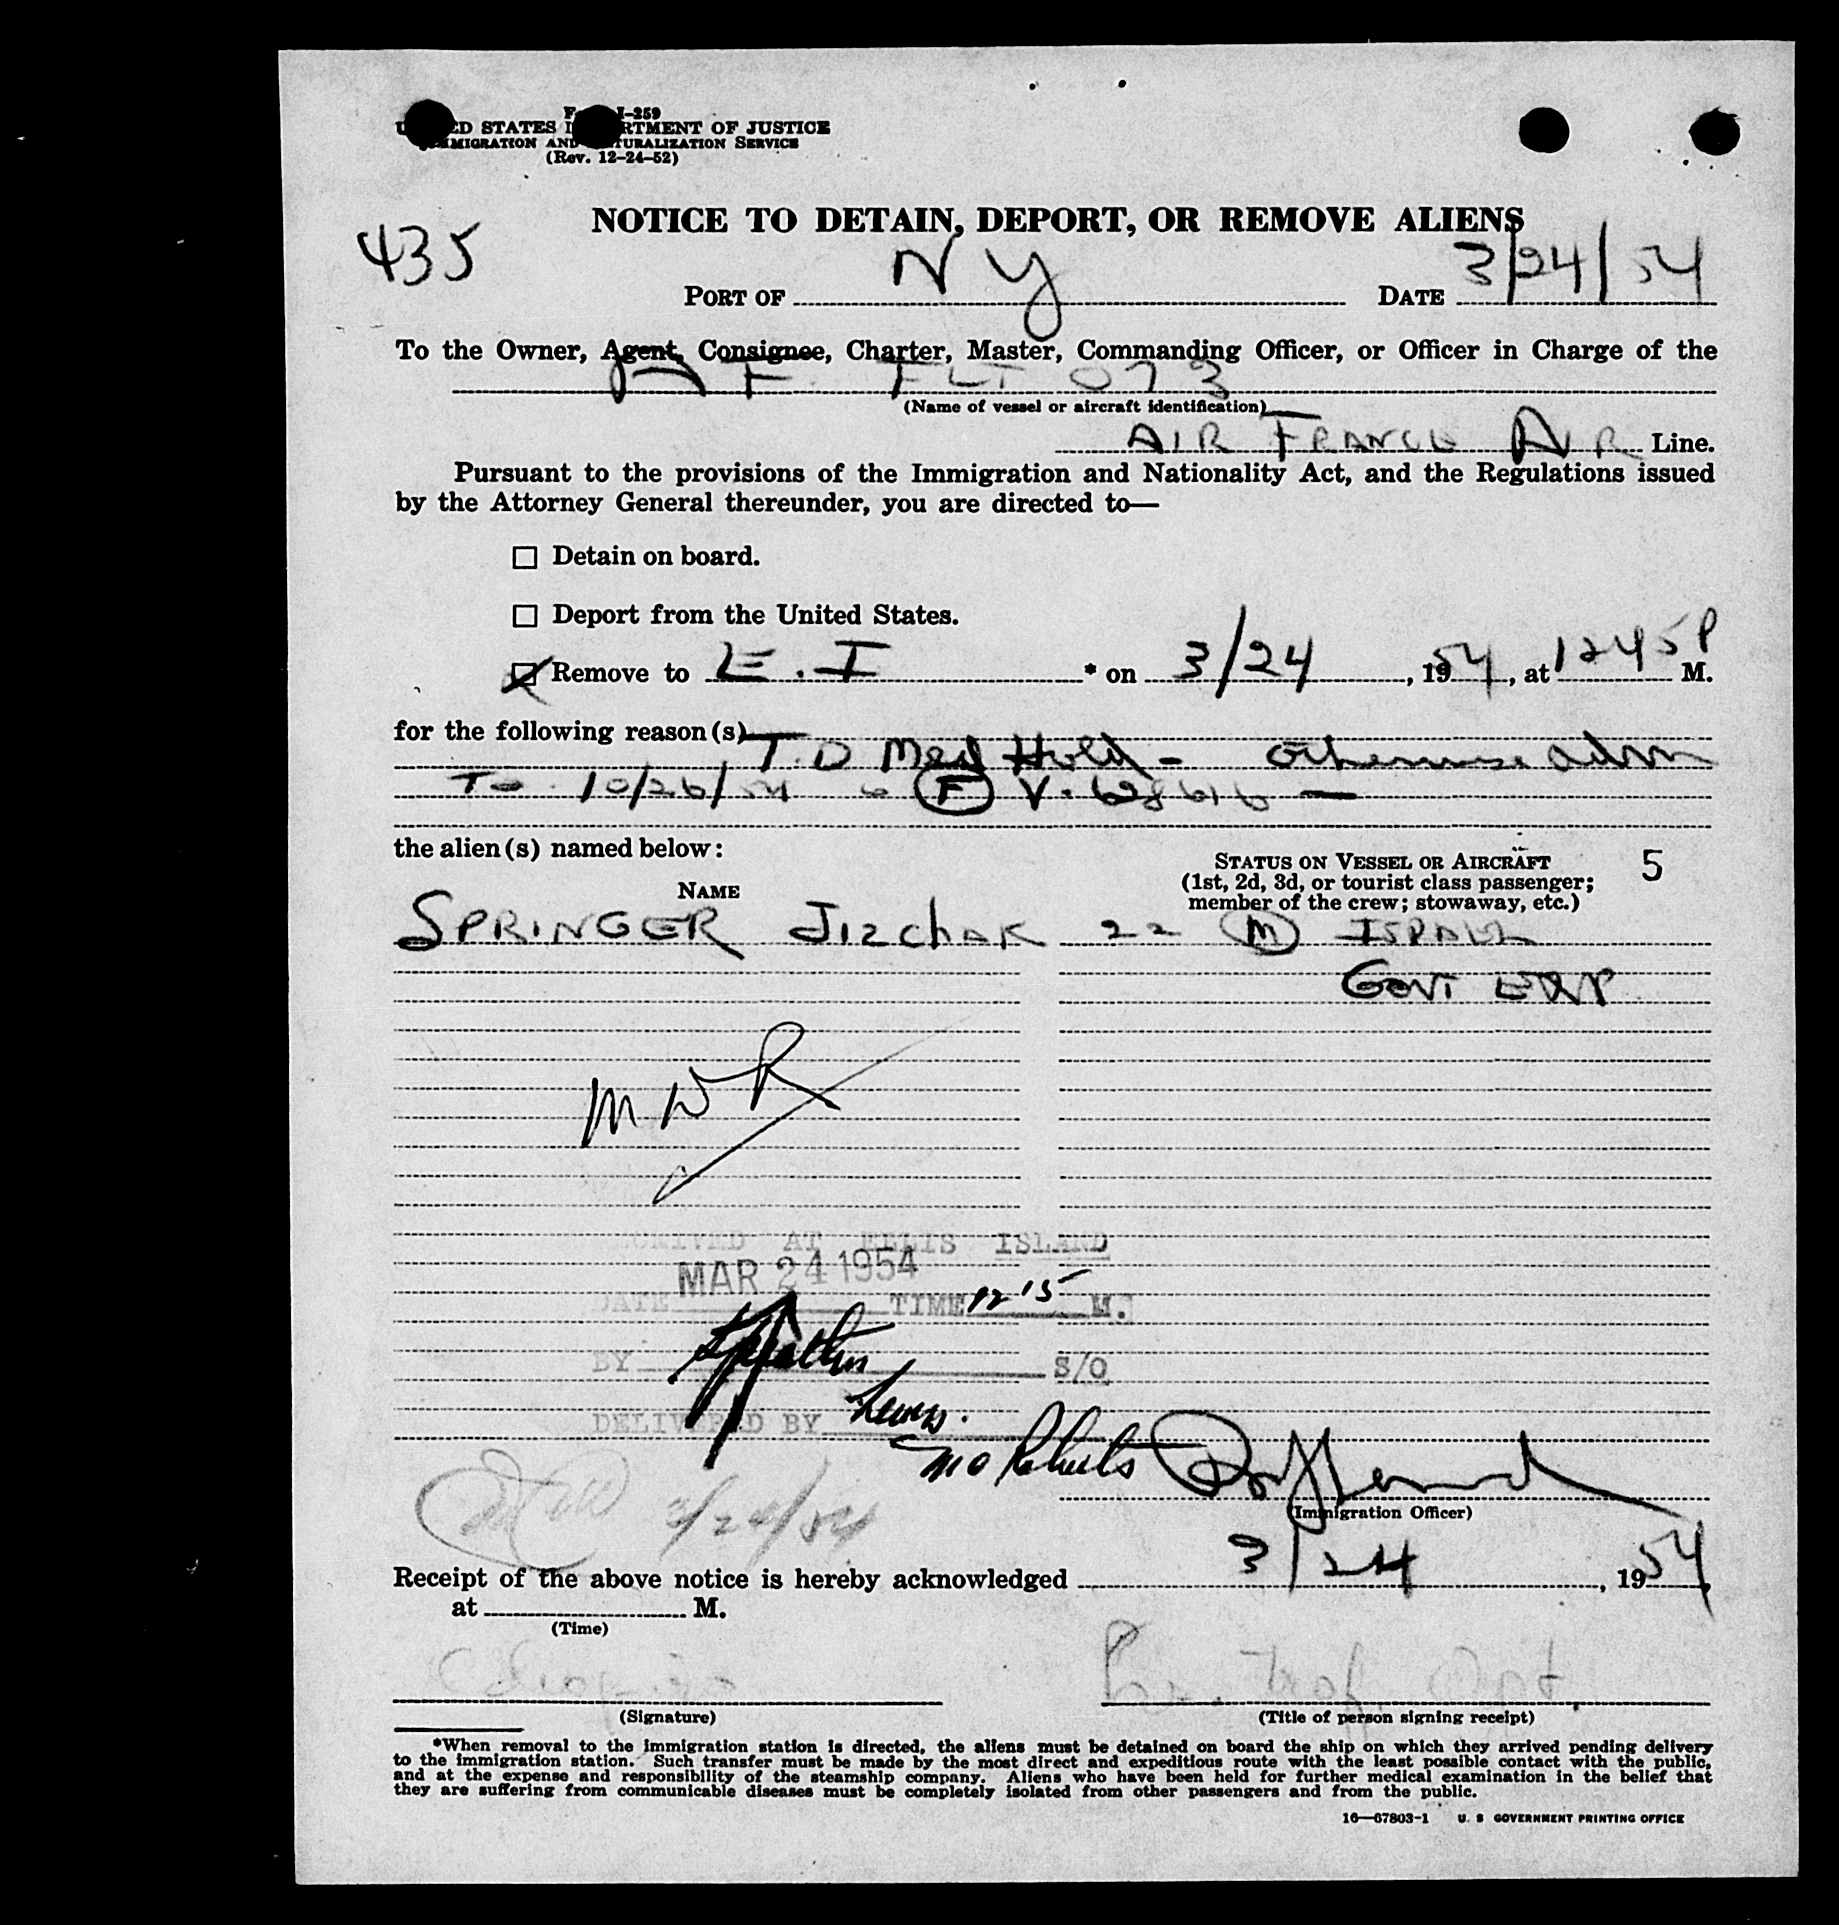 I-259
STATES DEPARTMENT OF JUSTICE
IMMIGRATION AND NATURALIZATION SERVICE
(Rev. 12-24-52)
NOTICE TO DETAIN, DEPORT, OR REMOVE ALIENS
435
PORT OF NY DATE 3/24/54
To the Owner, Agent, Consignee, Charter, Master, Commanding Officer, or Officer in Charge of the
AF FLT 073
(Name of vessel or aircraft identification)
AIR FRANCE AIR Line.
Pursuant to the provisions of the Immigration and Nationality Act, and the Regulations issued
by the Attorney General thereunder, you are directed to—
☐ Detain on board.
☐ Deport from the United States.
☒ Remove to E.I * on 3/24, 1954, at 1245 P M.
for the following reason(s)
T.D Med Hold - otherwise adm
To 10/26/54 F V. 68616 —
the alien(s) named below:
STATUS ON VESSEL OR AIRCRAFT 5
(1st, 2d, 3d, or tourist class passenger;
NAME
member of the crew; stowaway, etc.)
SPRINGER Jizchak 22 M ISRAEL
GOVT EMP
MWR
ARRIVED AT ELLIS ISLAND
MAR 24 1954
DATE TIME 12 15 M.
BY S/O
DELIVERED BY
Roberts
(Immigration Officer)
3/24/54
Receipt of the above notice is hereby acknowledged 3/24, 1954,
at M.
(Time)
(Signature) (Title of person signing receipt)
*When removal to the immigration station is directed, the aliens must be detained on board the ship on which they arrived pending delivery
to the immigration station. Such transfer must be made by the most direct and expeditious route with the least possible contact with the public,
and at the expense and responsibility of the steamship company. Aliens who have been held for further medical examination in the belief that
they are suffering from communicable diseases must be completely isolated from other passengers and from the public.
16—67803-1 U. S GOVERNMENT PRINTING OFFICE